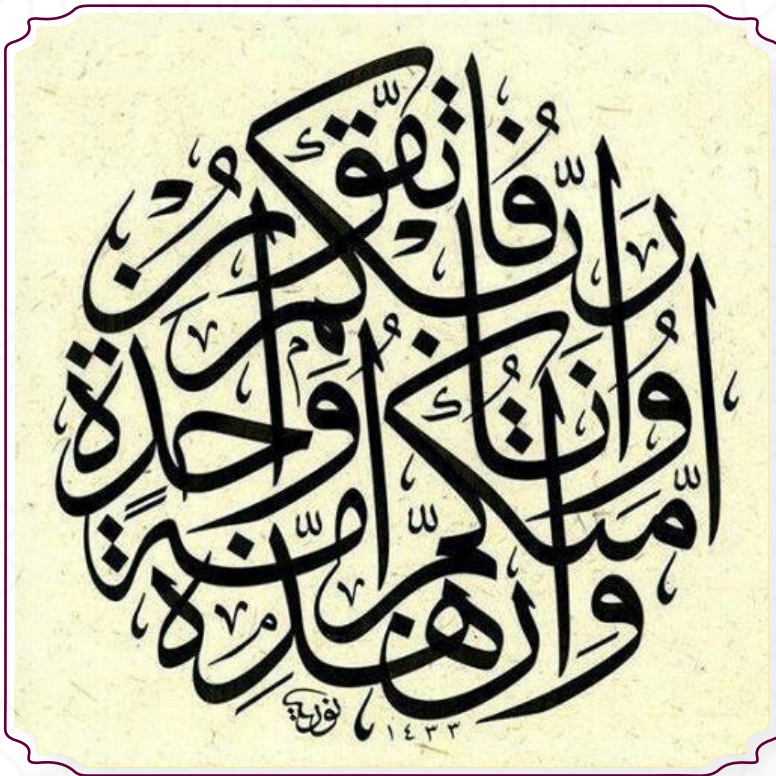 وَإِنَّ هَٰذِهِ أُمَّتُكُمْ أُمَّةً وَاحِدَةً وَأَنَا رَبُّكُمْ فَاتَّقُونِ
١٤٣٣